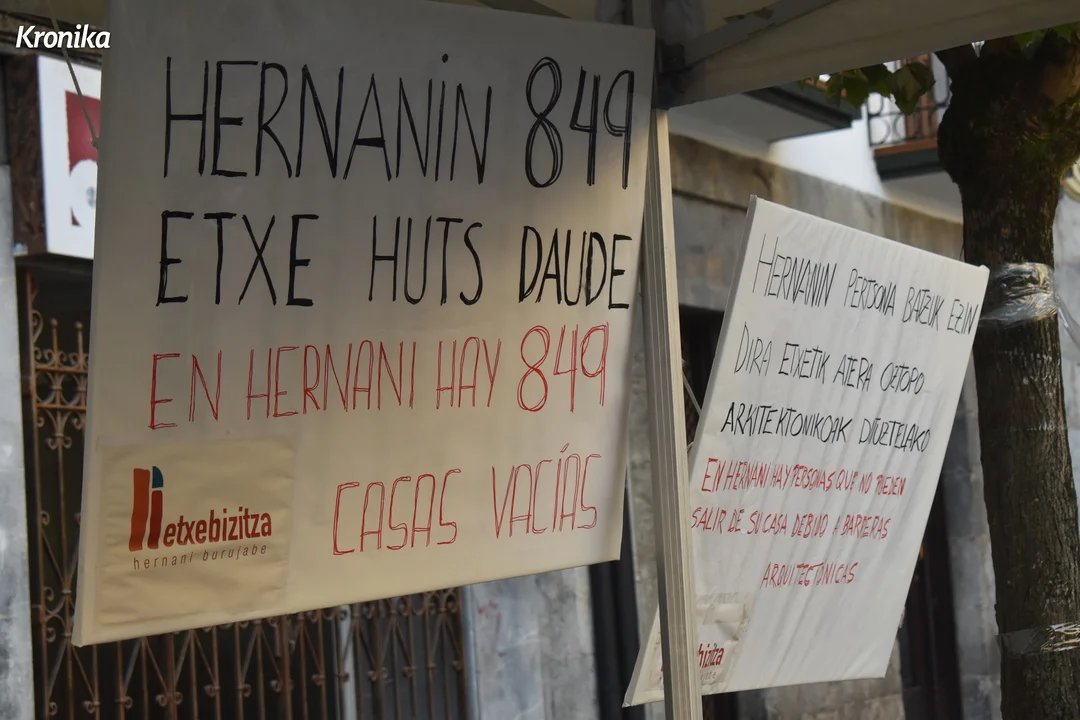 Kronika
HERNANIN 849
ETXE HUTS DAUDE
EN HERNANI HAY 849
CASAS VACÍAS
etxebizitza
hernani burujabe
HERNANIN PERTSONA BATZUK EZIN
DIRA ETXETIK ATERA OZTOPO
ARKITEKTONIKOAK DITUZTELAKO
EN HERNANI HAY PERSONAS QUE NO PUEDEN
SALIR DE SU CASA DEBIDO A BARRERAS
ARQUITECTONICAS
bizitza